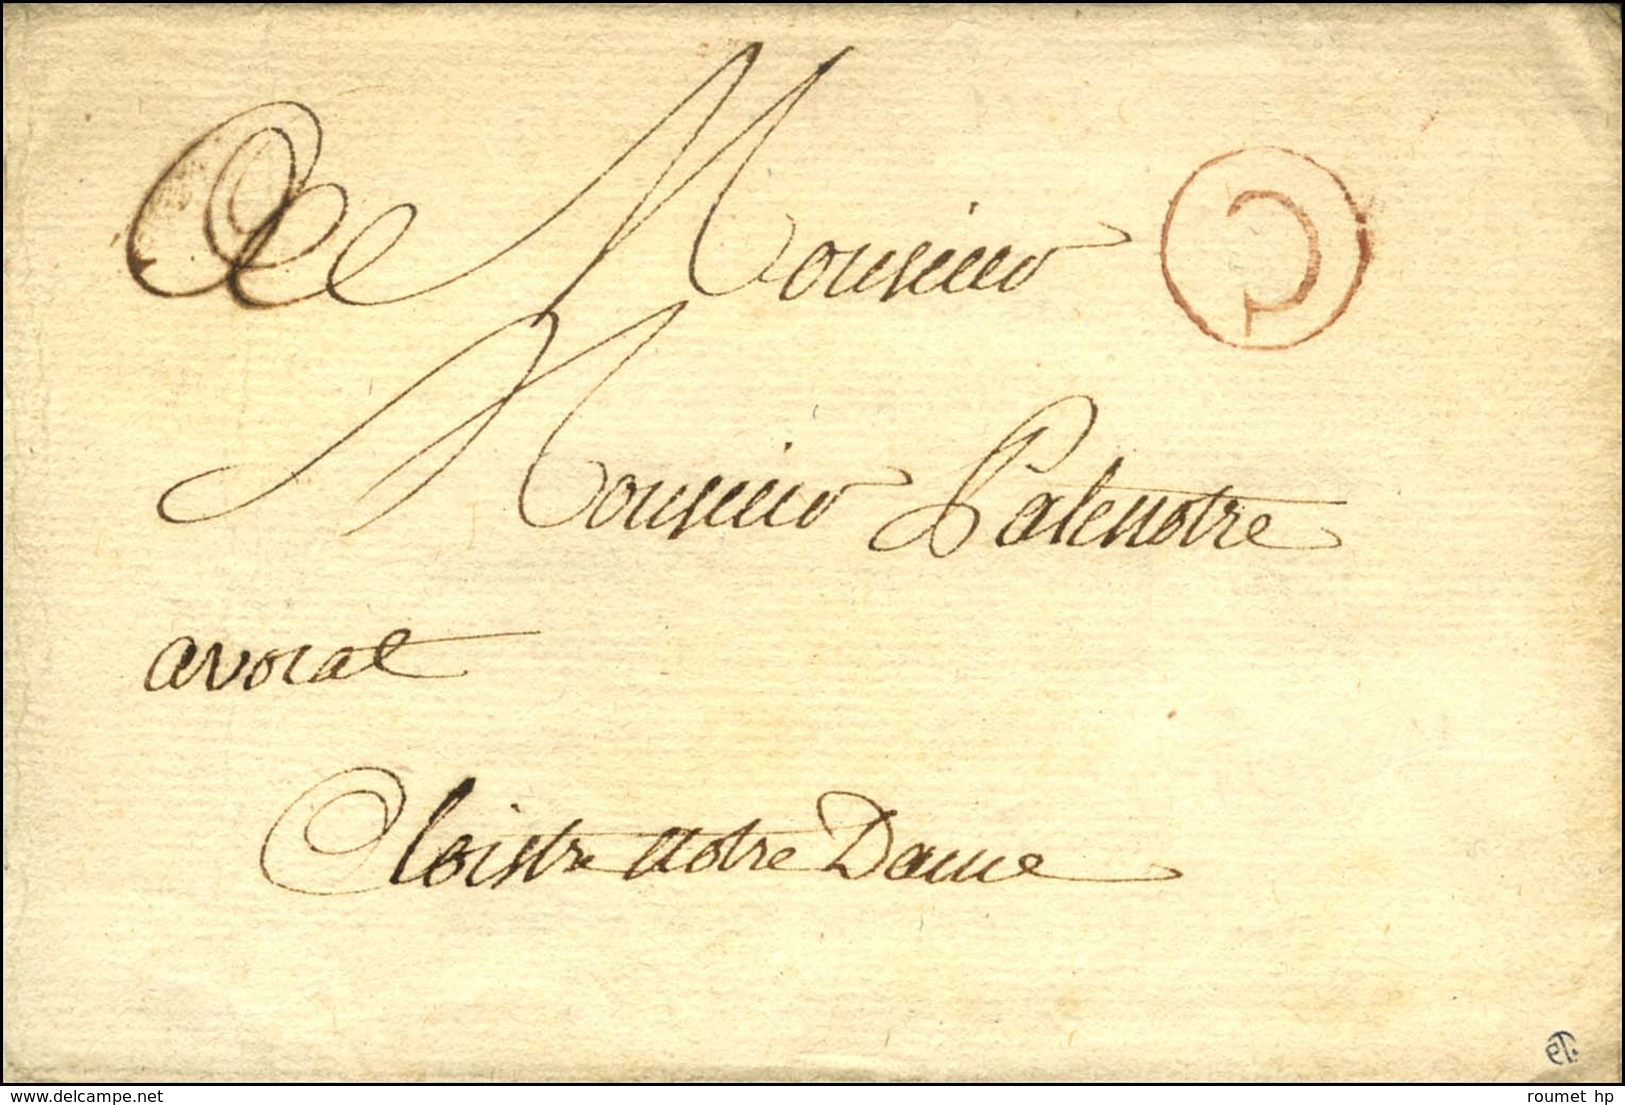 A Monsieur
C
Monsieur Palenotre
avocat
Cloistre notre Dame
delcampe.net
roumet hp